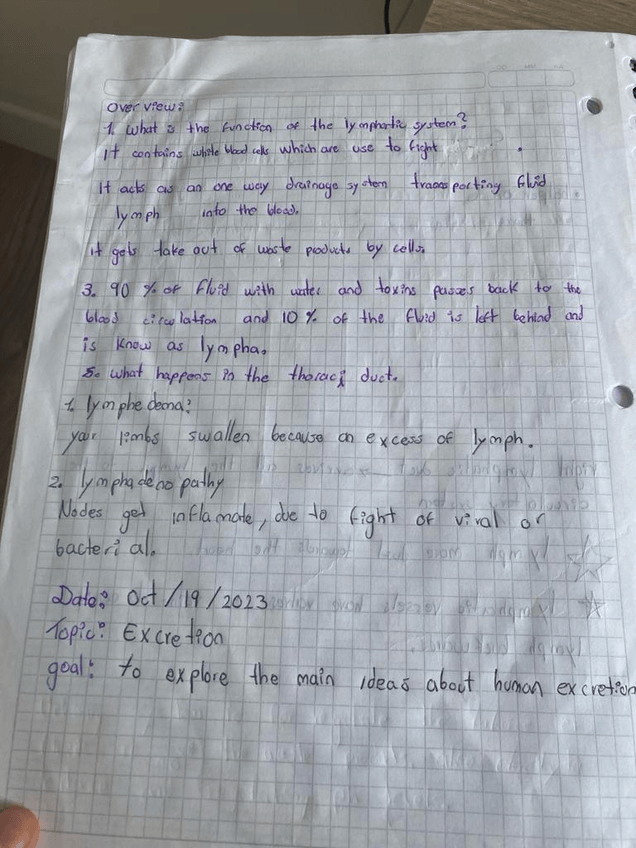 Over view:
1. What is the function of the lymphatic system?
It contains white blood cells which are use to fight .
It acts as an one way drainage system transporting fluid
lymph into the blood.
it gets take out of waste products by cells.
3. 90 % of fluid with water and toxins passes back to the
blood circulation and 10 % of the fluid is left behind and
is know as lympha.
5. what happens in the thoraci duct.
1. lymphedema:
your limbs swallen because an excess of lymph.
2. lymphadenopathy
Nodes get inflamate, due to fight of viral or
bacterial.
Date: Oct / 19 / 2023
Topic: Excretion
goal: to explore the main ideas about human excretion